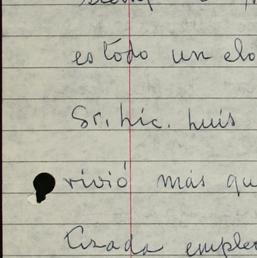 es todo un elo
Sr. Lic. Luis
vivió más qu
tizada emplea